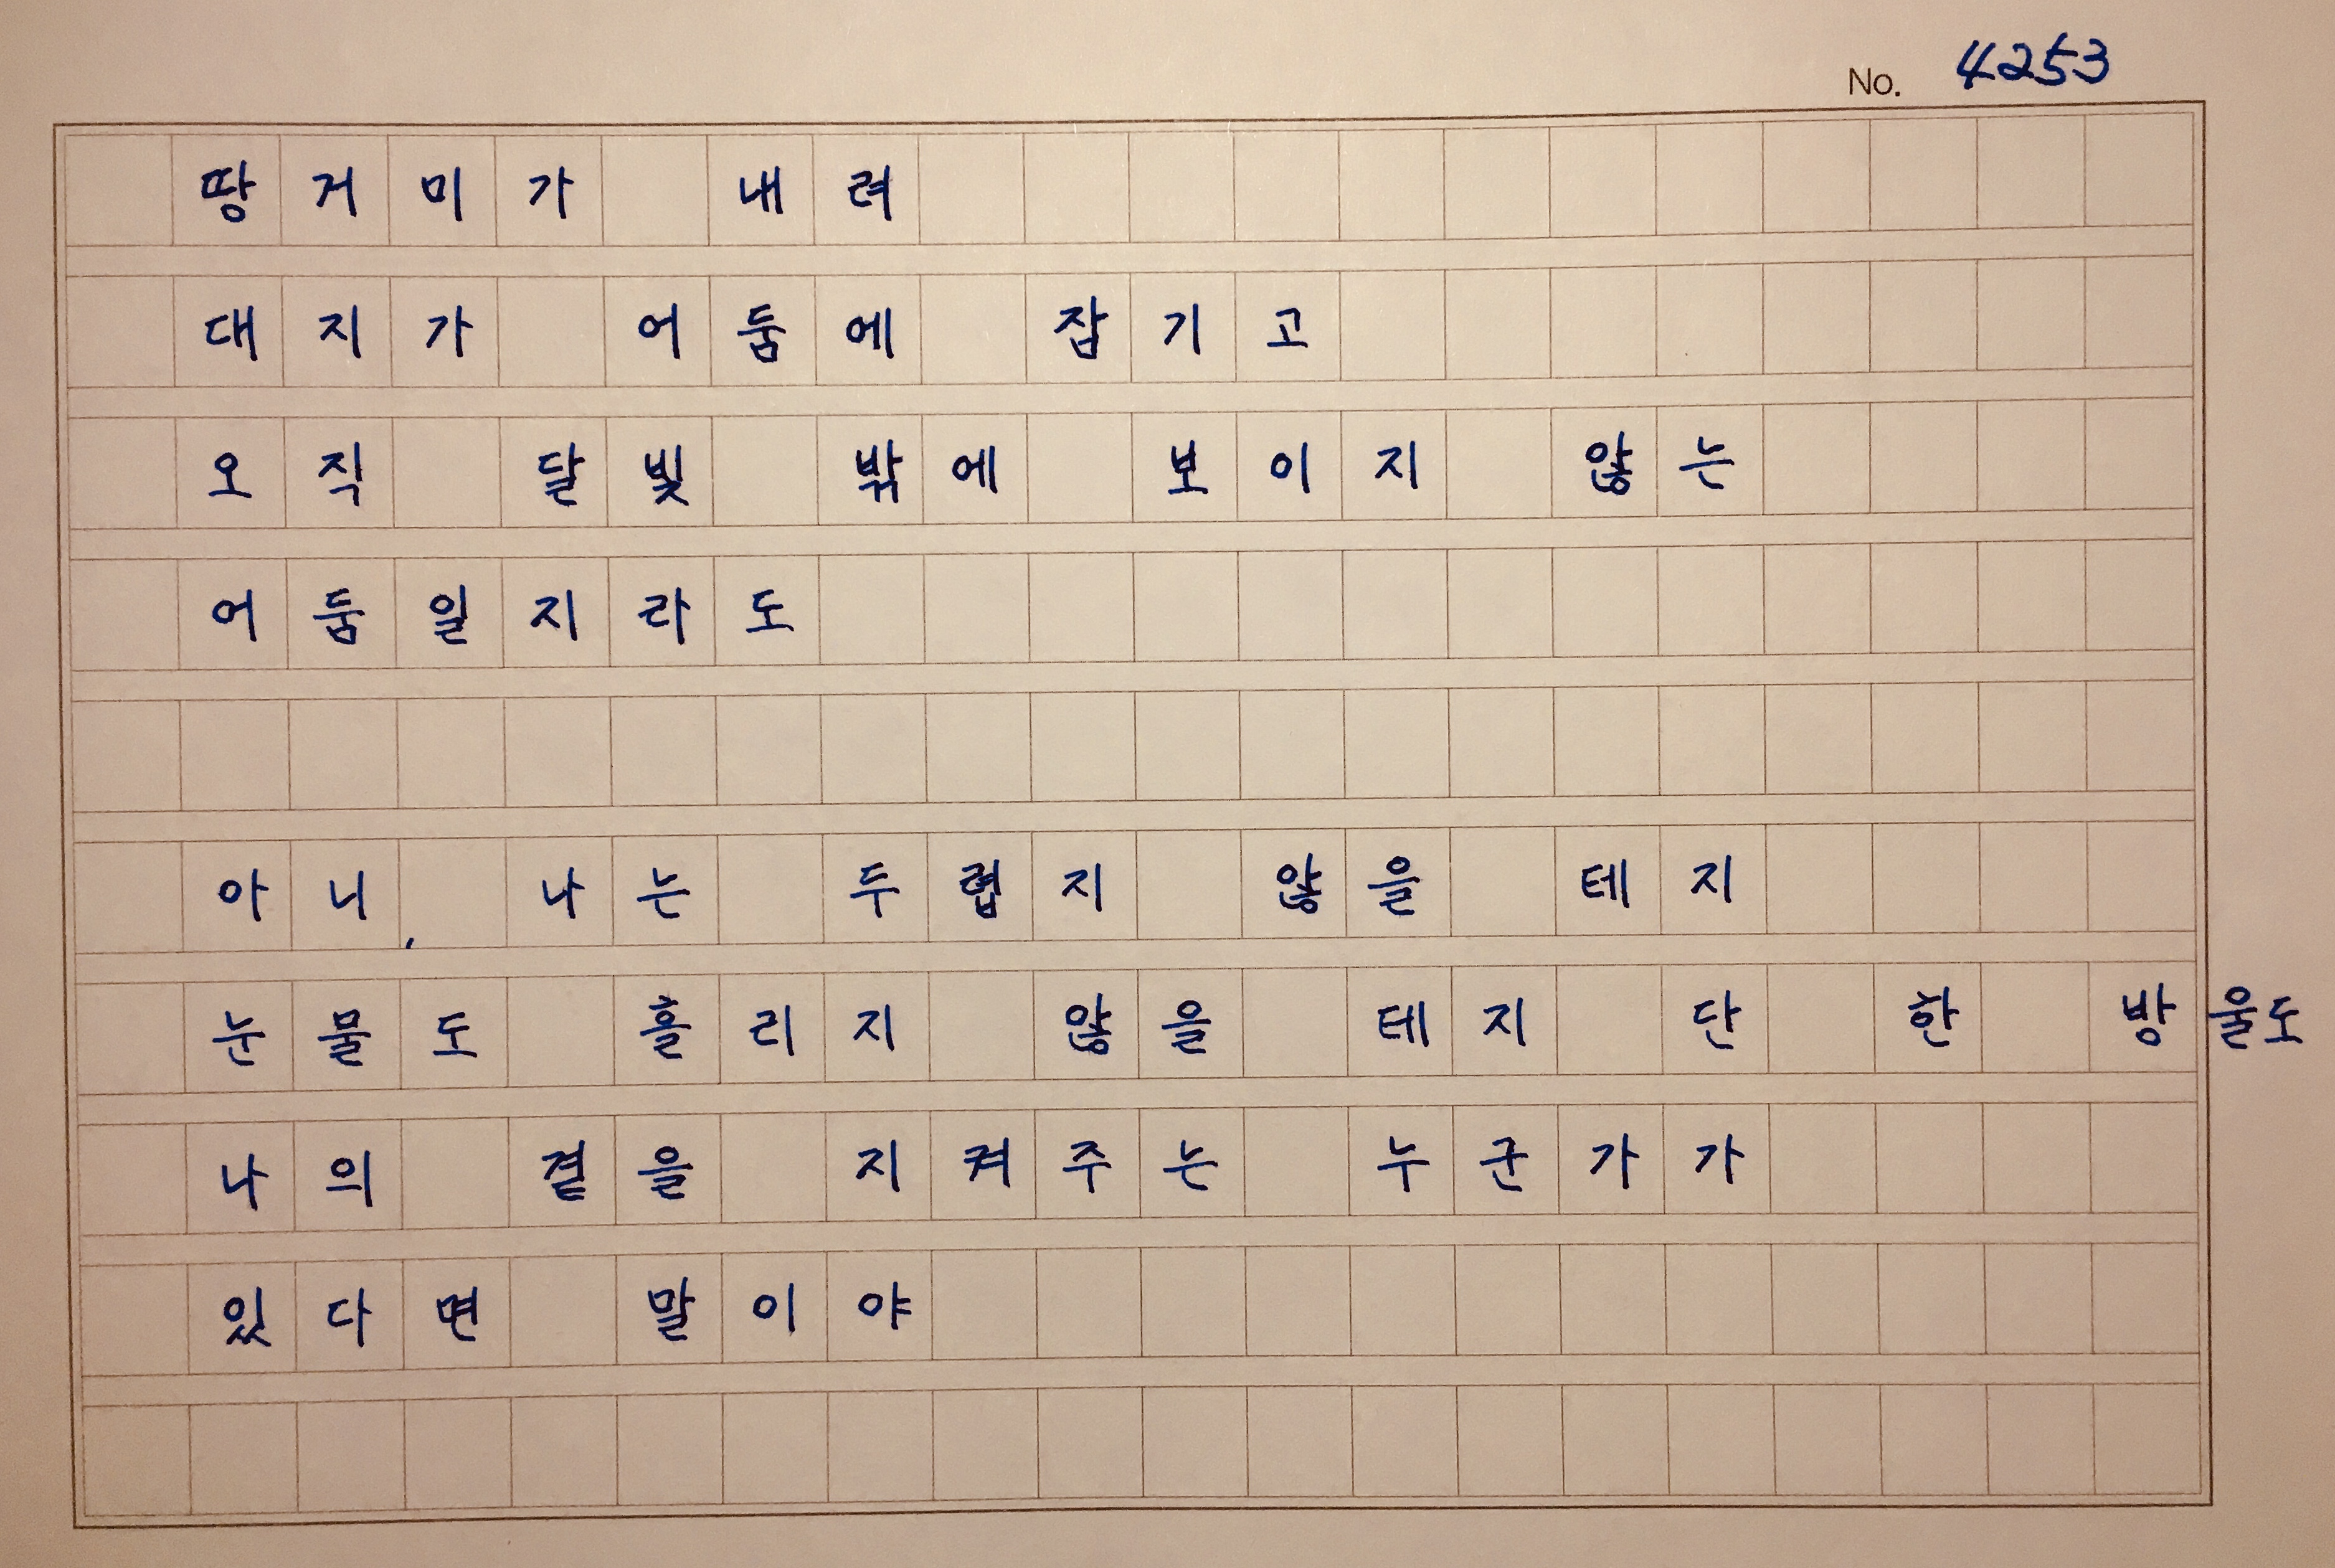 No. 4253
땅거미가 내려
대지가 어둠에 잠기고
오직 달빛 밖에 보이지 않는
어둠일지라도
아니, 나는 두렵지 않을 테지
눈물도 흘리지 않을 테지 단 한 방울도
나의 곁을 지켜주는 누군가가
있다면 말이야